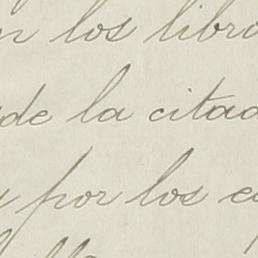 n los libro
de la citad
y por los e